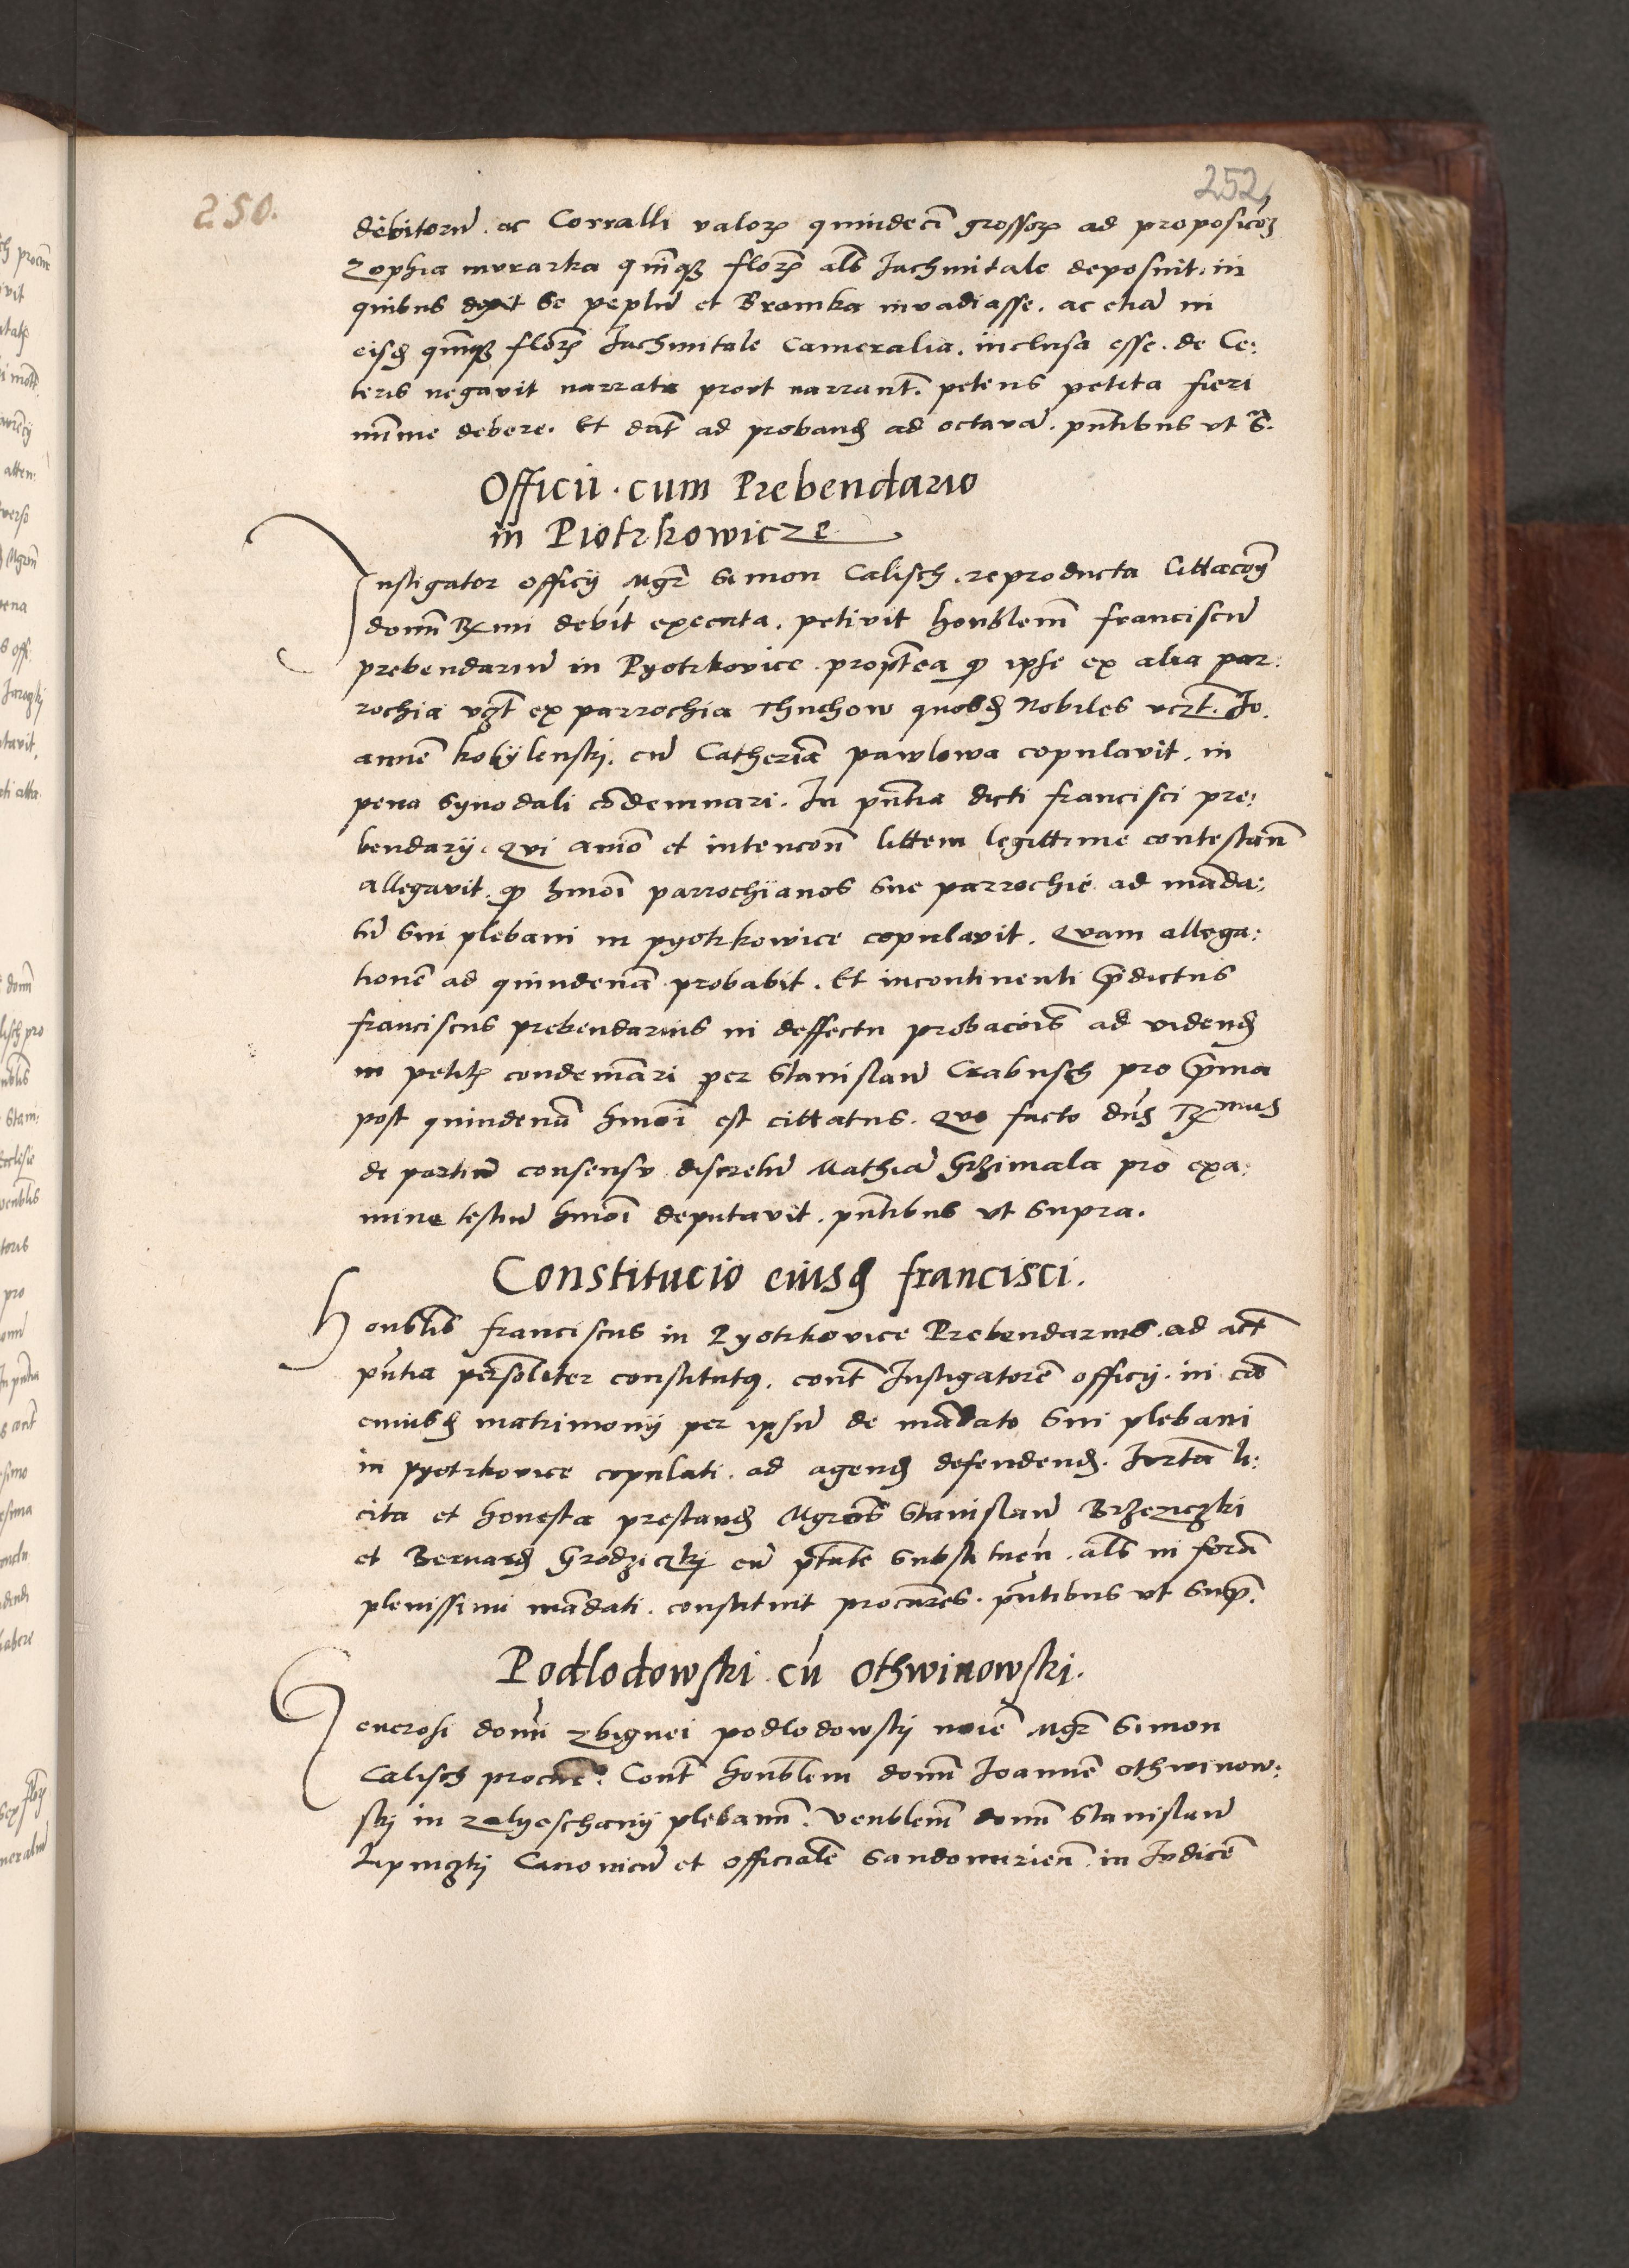 250.
252
debitorũ. ac Corralli valorꝫ quindecĩ grossorꝫ ad proposicõꝫ
Zophia murarka quinqꝫ florꝫ als̃ Jachmitale deposuit. in
quibus dixit se peplũ et Bramka invadiasse. ac etiã in
eisdꝫ quinqꝫ florꝫ Jachmitale Cameralia. inclusa esse. de Ce:
teris negavit narrata prout narrant̃. petens petita fieri
minime debere. Et dat̃ ad probandꝫ ad octavã. pn̄tibus ut s̃.
Officii. cum Prebendario
in Piotrkowicze
Instigator officij Mgr̃ Simon Calisch. reproducta Cittacoñ
domñ Rx̃mi debit̃ executa. petivit honblem̃ franciscũ
prebendariũ in Pyotrkovice. propt̃ea ꝙ ipse ex alia par:
rochia vꝫt ex parrochia Thuchow quosdꝫ Nobiles vczt. Jo.
annẽ kobylenskj. cũ Catheriã pawlowa copulavit. in
pena Synodali cõdemnari. In pn̄tia dicti francisci pre:
bendarij. Qui animõ et intencoñ littem legittime contestanñ
allegavit. ꝙ hmõi parrochianos sue parrochie ad mãda:
tũ sui plebani in pyotrkowice copulavit. Quam allega:
tionẽ ad quindenã probabit. Et incontinenti p̃dictus
franciscus prebendarius in deffectu probacõis ad videndꝫ
in petitꝫ condemñari per Stanislaũ Crabusch pro p̃ima
post quindenã hmõi est cittatus. Quo facto dñs Rx̃mus
de partiũ consensu discretũ Mathiã Grzimala pro exa:
mine testiũ hmõi deputavit. pn̄tibus ut supra.
Constitucio eiusdꝫ francisci.
honblis̃ franciscus in Pyotrkovice Prebendarius. ad act̃
pn̄tia personaliter constitutꝰ. cont̃ Instigatorẽ officij. in cã
cuiusdꝫ matrimonij per ipsũ de mãdato sui plebani
in pyotrkovice copulati. ad agendꝫ defendendꝫ. Jurtã li:
cita et honesta prestandꝫ Mgros̃ Stanislaũ Brzezẏczki
et Bernardꝫ Grodziczkj cũ pt̃ate substituen̄. als̃ in formã
plenissimi mãdati. constituit procur̃es. pn̄tibus ut sup̃.
Podlodowski cũ othwinowski.
Generosi domĩ Zbignei podlodowskj noĩe Mgr̃ Simon
Calisch procur̃. Cont̃ honblem domñ Joannẽ othwinow:
skj in zalyeschanij plebanũ. venblem̃ domñ Stanislaũ
Lipniczkj Canonicũ et officialẽ Sandomirieñ. in Judicẽ